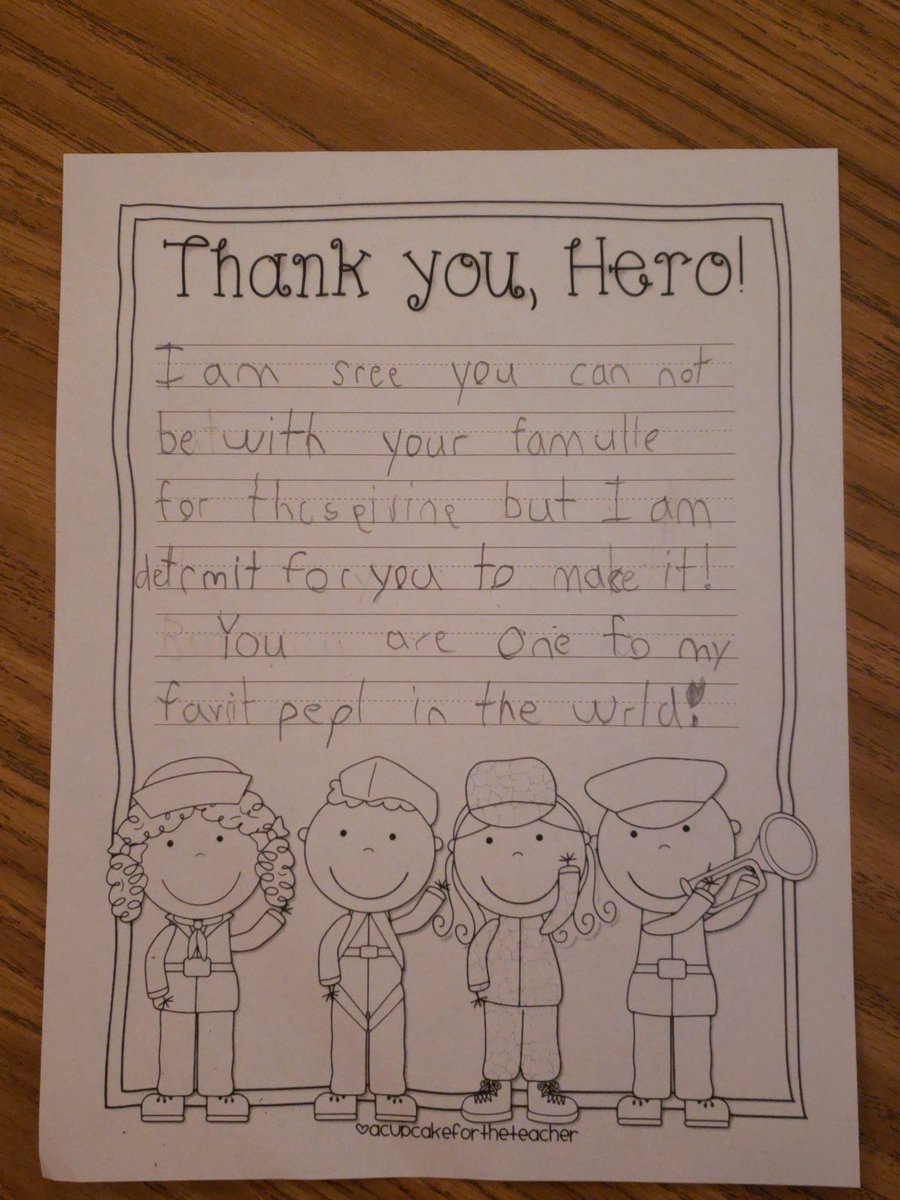 Thank you, Hero!
I am sree you can not
be with your famulle
for thcsgiving but I am
detrmit for you to make it!
You are one to my
favrit pepl in the wrld!
acupcakefortheteacher